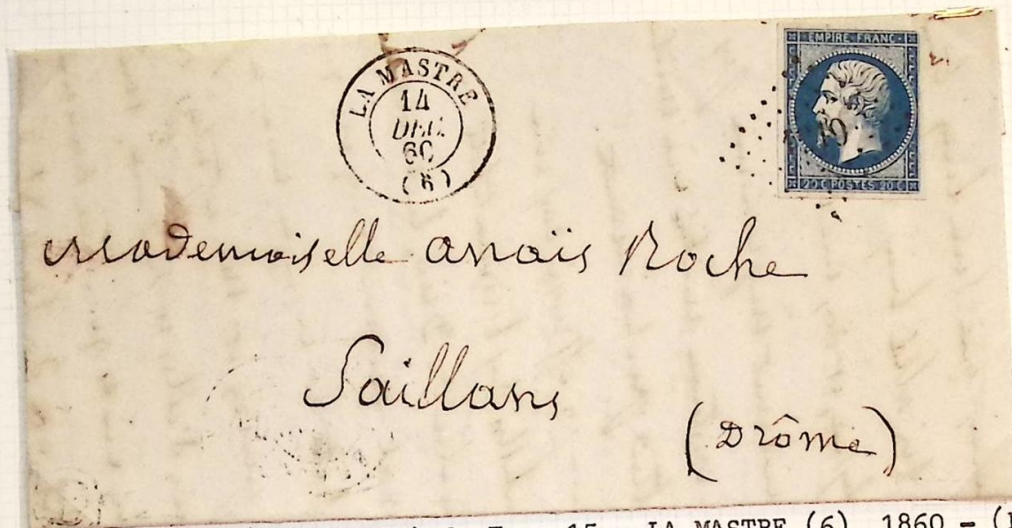 LA MASTRE
14
DEC.
60
(6)
EMPIRE FRANC.
20 C POSTES 20 C
Mademoiselle anaïs Roche
Saillans
(Drôme)
15 LA MASTRE (6) 1860 - (